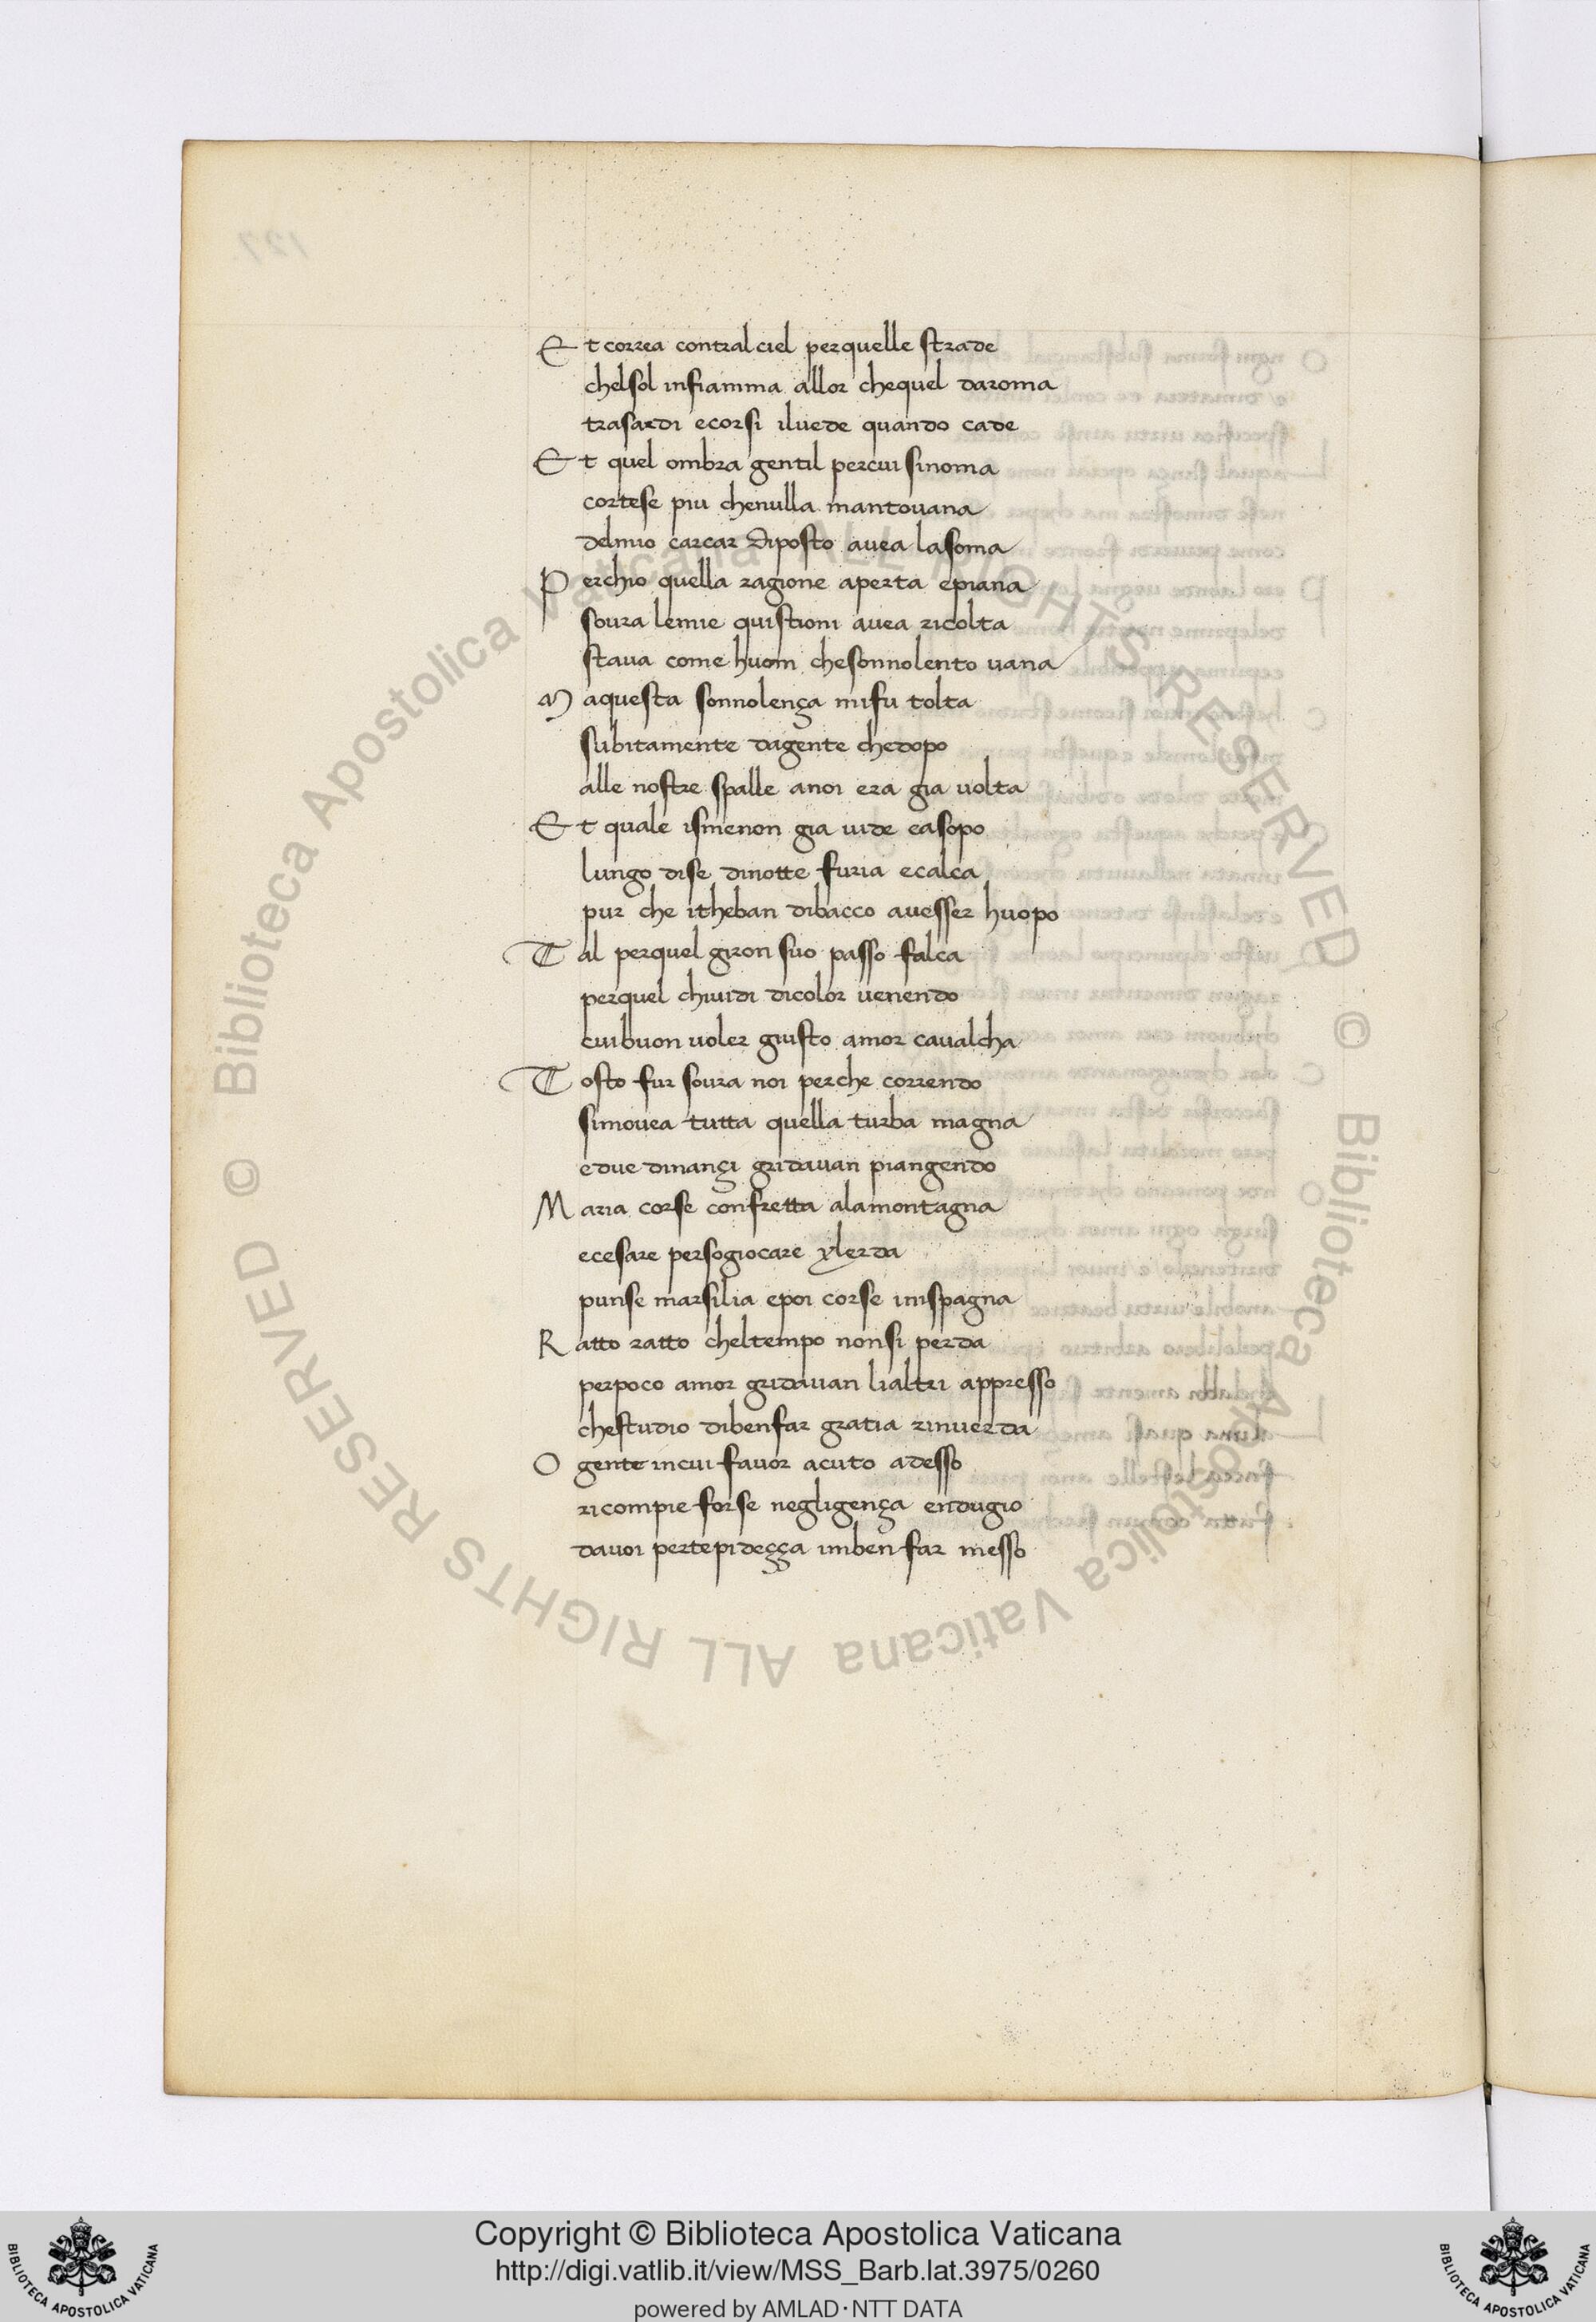 Et correa contralciel perquelle strade
chelsol infiamma allor chequel daroma
trasardi ecorsi iluede quando cade
Et quel ombra gentil percui sinoma
cortese piu chenulla mantouana
delmio carcar diposto auea lasoma
Perchio quella ragione aperta epiana
soura lemie quistioni auea ricolta
staua come huom chesonnolento uana
Maquesta sonnolença mifu tolta
subitamente dagente chedopo
alle nostre spalle anoi era gia uolta
Et quale ismenon gia uide easopo
lungo dise dinotte furia ecalca
pur che itheban dibacco auesser huopo
Tal perquel giron suo passo falca
perquel chiuidi dicolor uenendo
cuibuon uoler giusto amor caualcha
Tosto fur soura noi perche correndo
simouea tutta quella turba magna
edue dinançi gridauan piangendo
Maria corse confretta alamontagna
ecesare persogiocare ylerda
punse marsilia epoi corse inispagna
Ratto ratto cheltempo nonsi perda
perpoco amor gridauan lialtri appresso
chestudio dibenfar gratia rinuerda
O gente incui fauor acuto adesso
ricompie forse negligença endugio
dauoi pertepideçça inben far messo
© Biblioteca Apostolica Vaticana ALL RIGHTS RESERVED © Biblioteca Apostolica Vaticana ALL RIGHTS RESERVED
Copyright © Biblioteca Apostolica Vaticana
http://digi.vatlib.it/view/MSS_Barb.lat.3975/0260
powered by AMLAD·NTT DATA
BIBLIOTECA APOSTOLICA VATICANA
BIBLIOTECA APOSTOLICA VATICANA